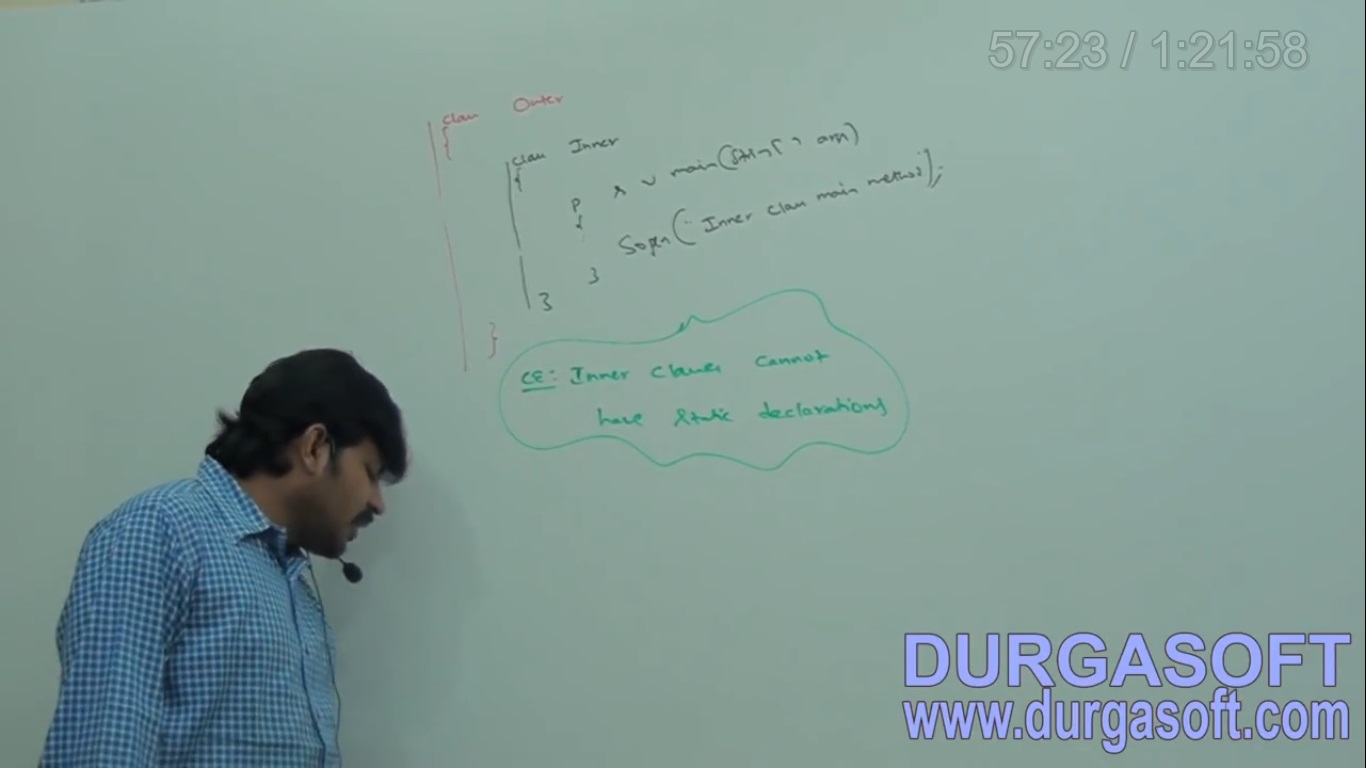 57:23 / 1:21:58
class Outer
{
class Inner
{
p s v main(String[] args)
{
Sopln("Inner class main method");
}
}
}
CE: Inner classes cannot
have static declarations
DURGASOFT
www.durgasoft.com